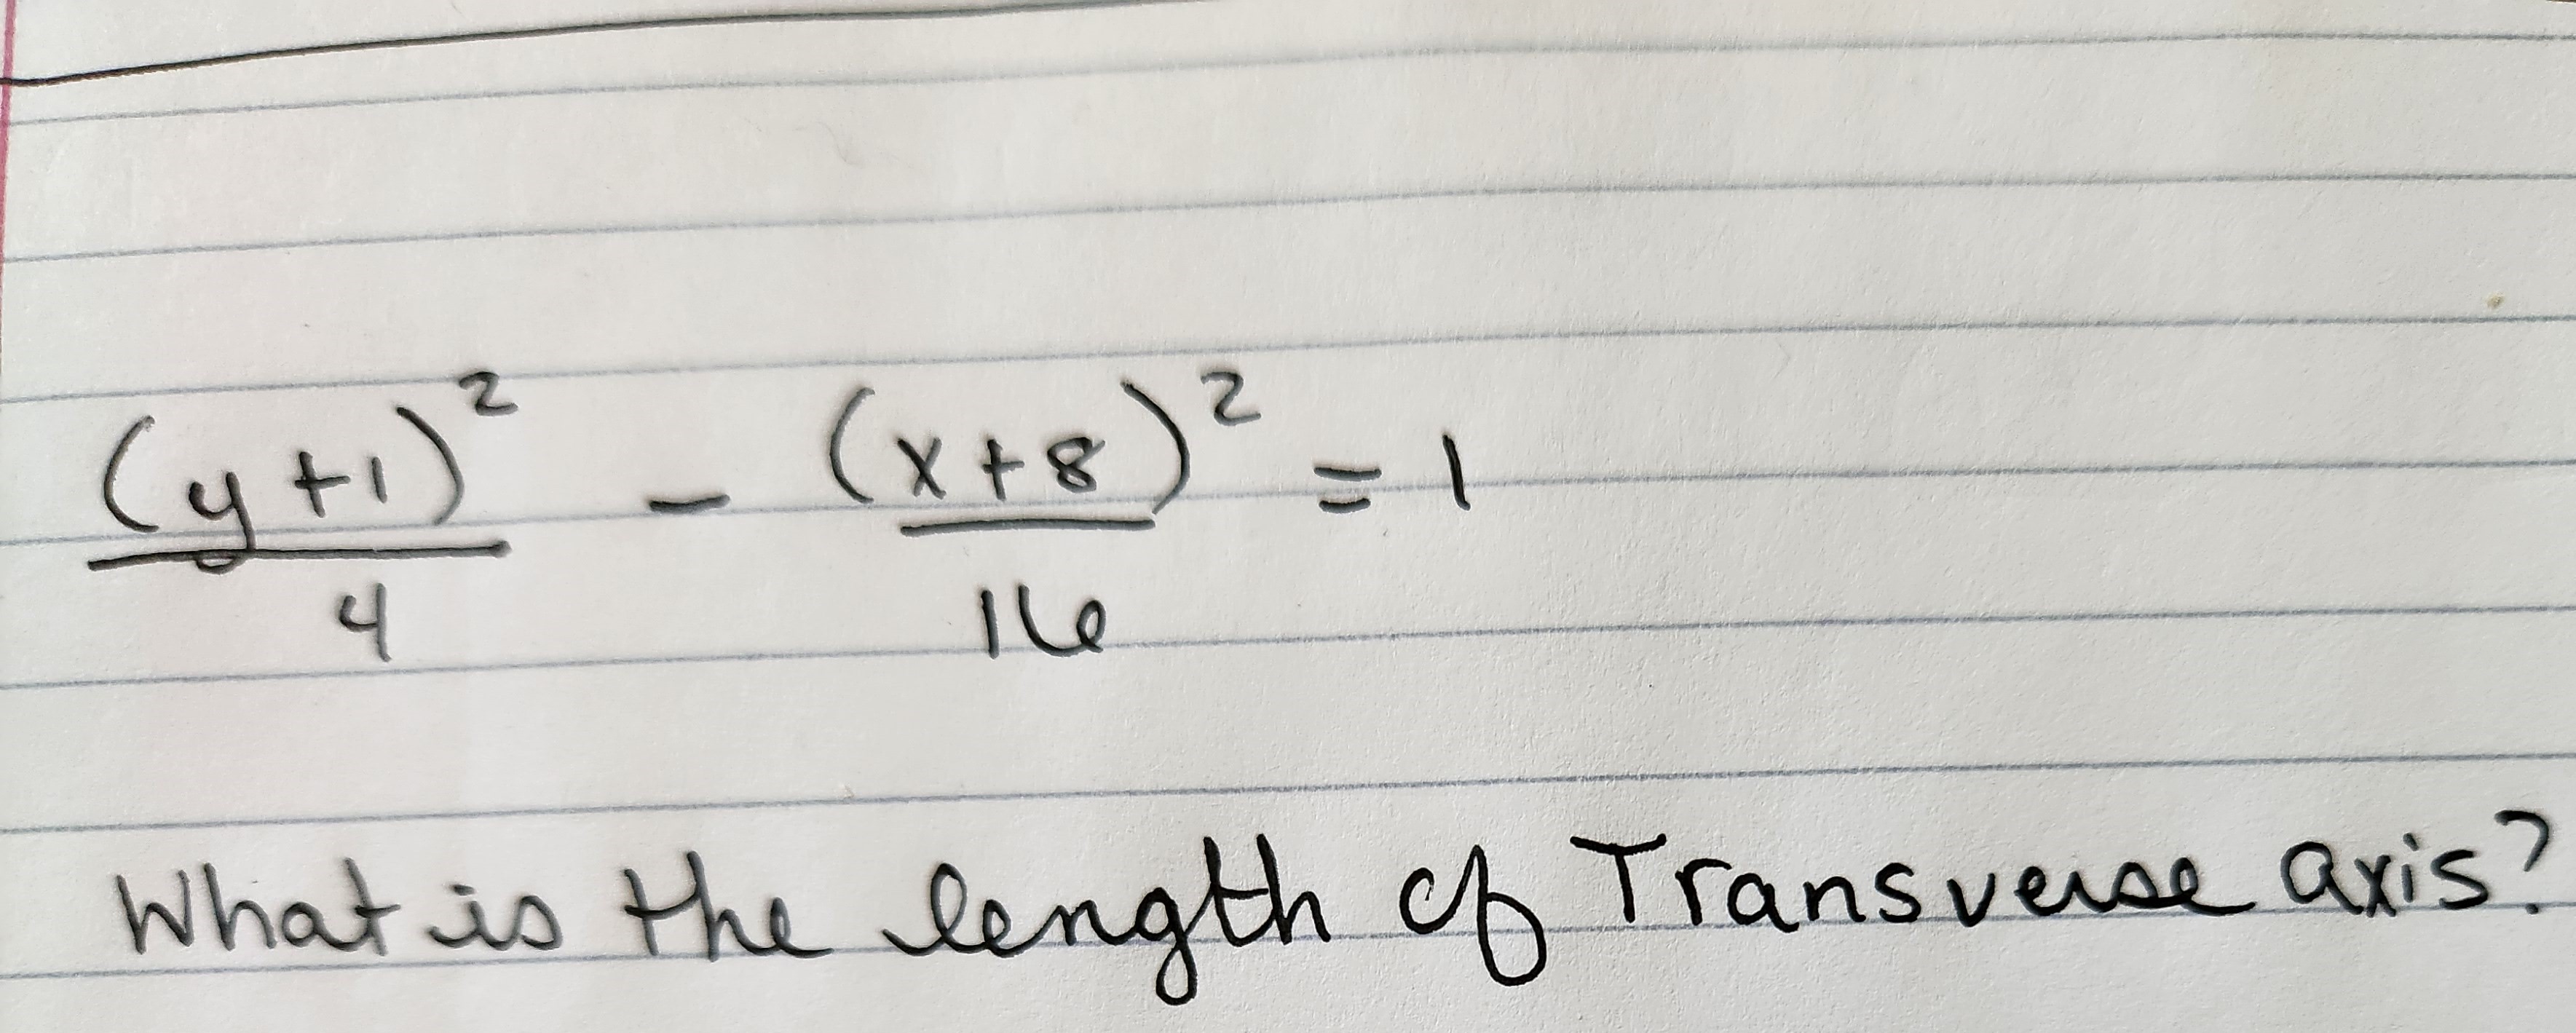 (y+1)² / 4 - (x+8)² / 16 = 1
What is the length of Transverse axis?